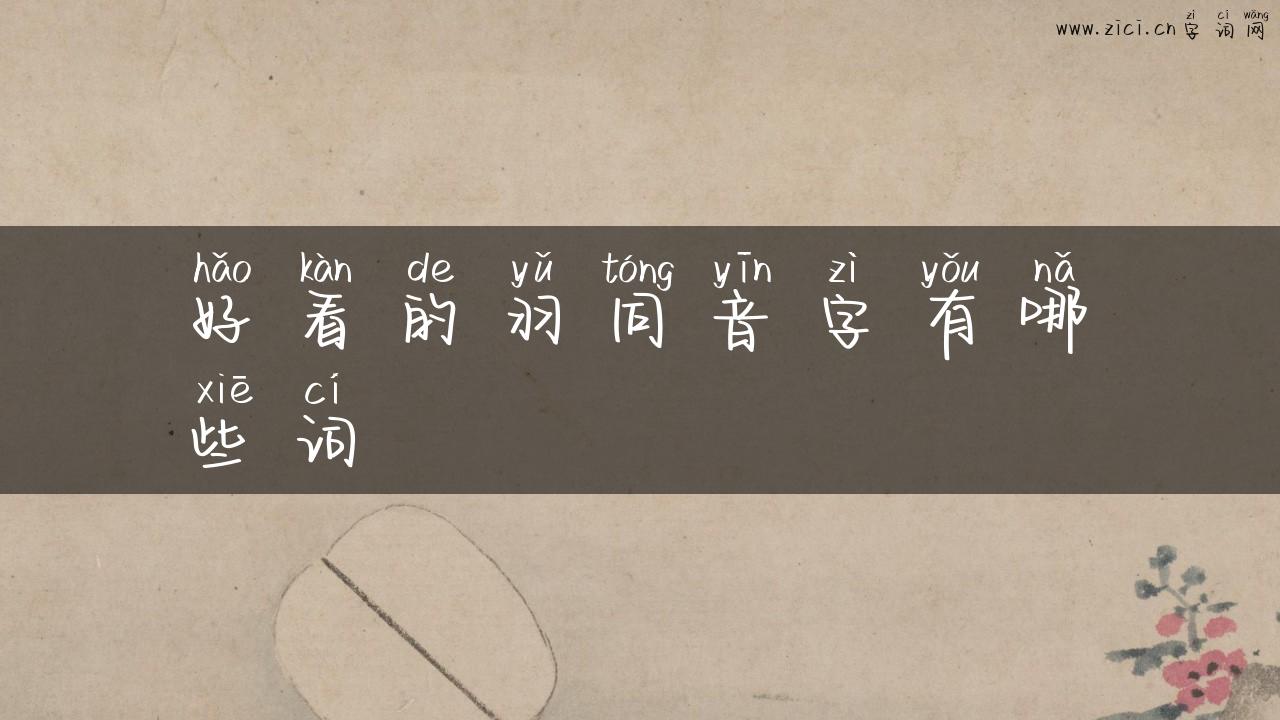 zì cí wǎng
www.zici.cn 字 词 网
hǎo kàn de yǔ tóng yīn zì yǒu nǎ
好 看 的 羽 同 音 字 有 哪
xiē cí
些 词